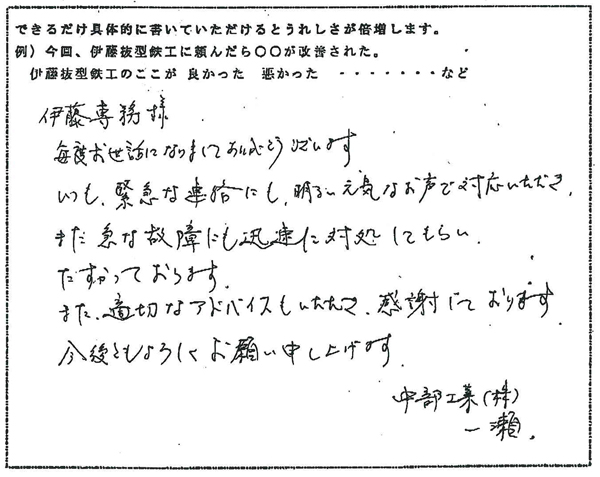 できるだけ具体的に書いていただけるとうれしさが倍増します。
例）今回、伊藤抜型鉄工に頼んだら〇〇が改善された。
伊藤抜型鉄工のここが 良かった 悪かった ・・・・・・・など
伊藤専務様
毎度お世話になりましてありがとうございます
いつも、緊急な連絡にも、明るい元気なお声で対応いただき、
また急な故障にも迅速に対処してもらい、
たすかっております。
また、適切なアドバイスもいただき、感謝しております
今後ともよろしくお願い申し上げます。
中部工業（株）
一瀬．